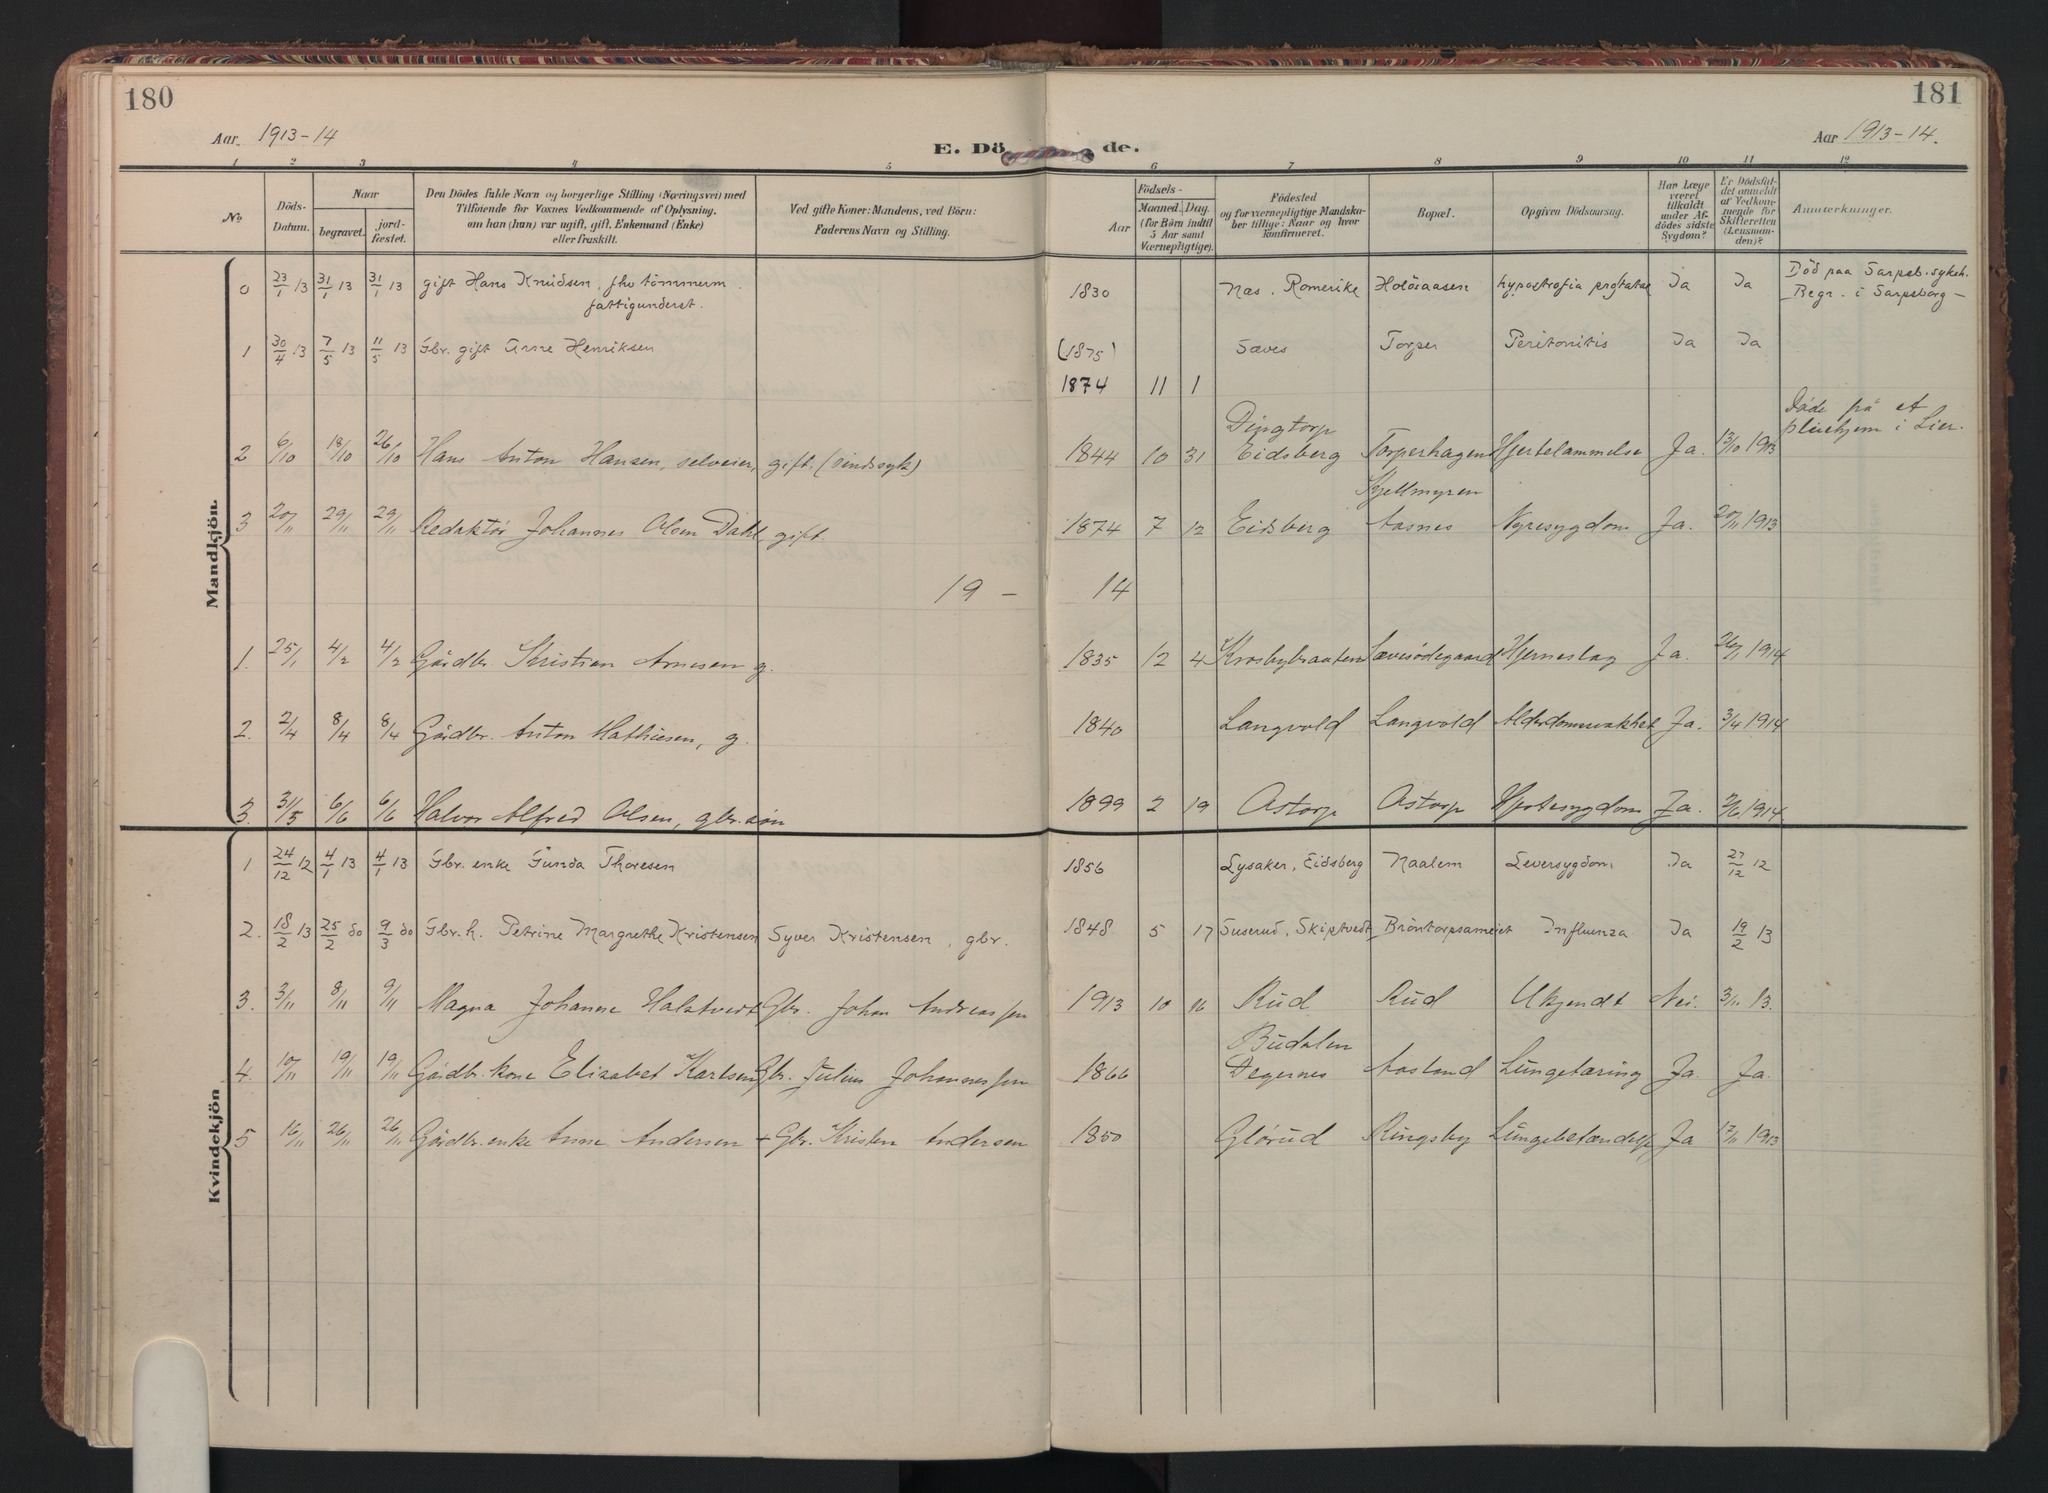 180
181
Aar 1913-14
E. Dö de.
Aar 1913-14.
1 2 3 4 5 6 7 8 9 10 11 12
No
Döds-Datum.
Naar
begravet.
jord-fæstet.
Den Dödes fulde Navn og borgerlige Stilling (Næringsvei) med
Tilföiende for Voxnes Vedkommende af Oplysning.
om han (hun) var ugift, gift, Enkemand (Enke)
eller fraskilt.
Ved gifte Koner: Mandens, ved Börn:
Faderens Navn og Stilling.
Födsels-
Aar
Maaned. Dag.
(for Börn indtil
5 Aar samt
Værnepligtige).
Födested
og for værnepligtige Mandska-
ber tillige: Naar og hvor
konfirmeret.
Bopæl.
Opgiven Dödsaarsag.
Har Læge
været
tilkaldt
under Af-
dödes sidste
Sygdom?
Er Dödsfal-
det anmeldt
af Vedkom-
mende for
Skifteretten
(Lensman-
den)?
Anmærkninger.
Mandkjön.
0 23/1 13 31/1 13 31/1 13 gift Hans Knudsen, fhv tömmerm. 1830 Næs, Romerike Holösaasen hypostrofia prostatae Ja Ja Död paa Sarpsb. sykeh.
fattigunderst. Begr. i Sarpsborg -
1 30/4 13 7/5 13 11/5 13 Gbr. gift Anne Henriksen (1875) Sæves Torper Peritonitis Ja Ja
1874 11 1
Dingtorp Döde på et
2 6/10 18/10 26/10 Hans Anton Hansen, selveier, gift. (sindssyk) 1844 10 31 Eidsberg Torperhagen Hjertelammelse Ja. 13/10 1913 pleiehjem i Lier.
Kjellmyren
3 20/11 29/11 29/11 Redaktör Johannes Olsen Dahl gift 1874 7 12 Eidsberg Aasnes Nyresygdom Ja. 20/11 1913
19 - 14
1. 25/1 4/2 4/2 Gårdbr. Kristian Arnesen g. 1835 12 4 Krosbybraaten Sævesödegaard Hjerneslag Ja. 26/1 1914
2. 2/4 8/4 8/4 Gårdbr. Anton Mathiesen, g. 1840 Langvold Langvold Alderdomssvakhet Ja. 3/4 1914
3. 31/5 6/6 6/6 Halvor Alfred Olsen, gbr.sön 1899 2 19 Astorp Astorp Hjertesygdom Ja. 2/6 1914
Kvindekjön
1 24/12 12 4/1 13 4/1 13 Gbr. enke Gunda Thoresen 1856 Lysaker, Eidsberg Naalem Leversygdom Ja 27/12 12
2. 18/2 13 25/2 do 9/3 do Gbr. h. Petrine Margrethe Kristensen Syver Kristensen, gbr. 1848 5 17 Suserud, Skiptvedt Bröntorpsameiet Influenza Ja 19/2 13
3. 3/11 8/11 9/11 Magna Johanne Halstvedt Gbr. Johan Andreassen 1913 10 16 Rud Rud Ukjendt Nei. 3/11 13.
Budalen
4. 10/11 19/11 19/11 Gårdbr. kone Elizabet Karlsen Gbr. Julius Johannessen 1866 Degernes Aasland Lungetæring Ja. Ja.
5 16/11 26/11 26/11 Gårdbr. enke Anne Andersen - Gbr. Kristen Andersen 1850 Glörud Ringsby Lungebetændelse Ja 17/11 1913